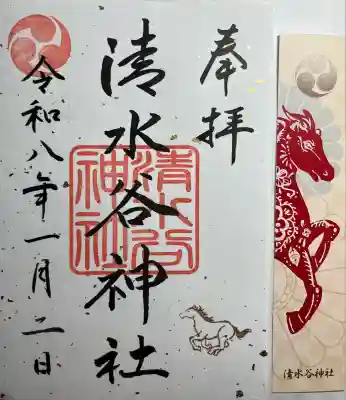 奉拝
清水谷神社
清水谷神社
令和八年一月二日
清水谷神社